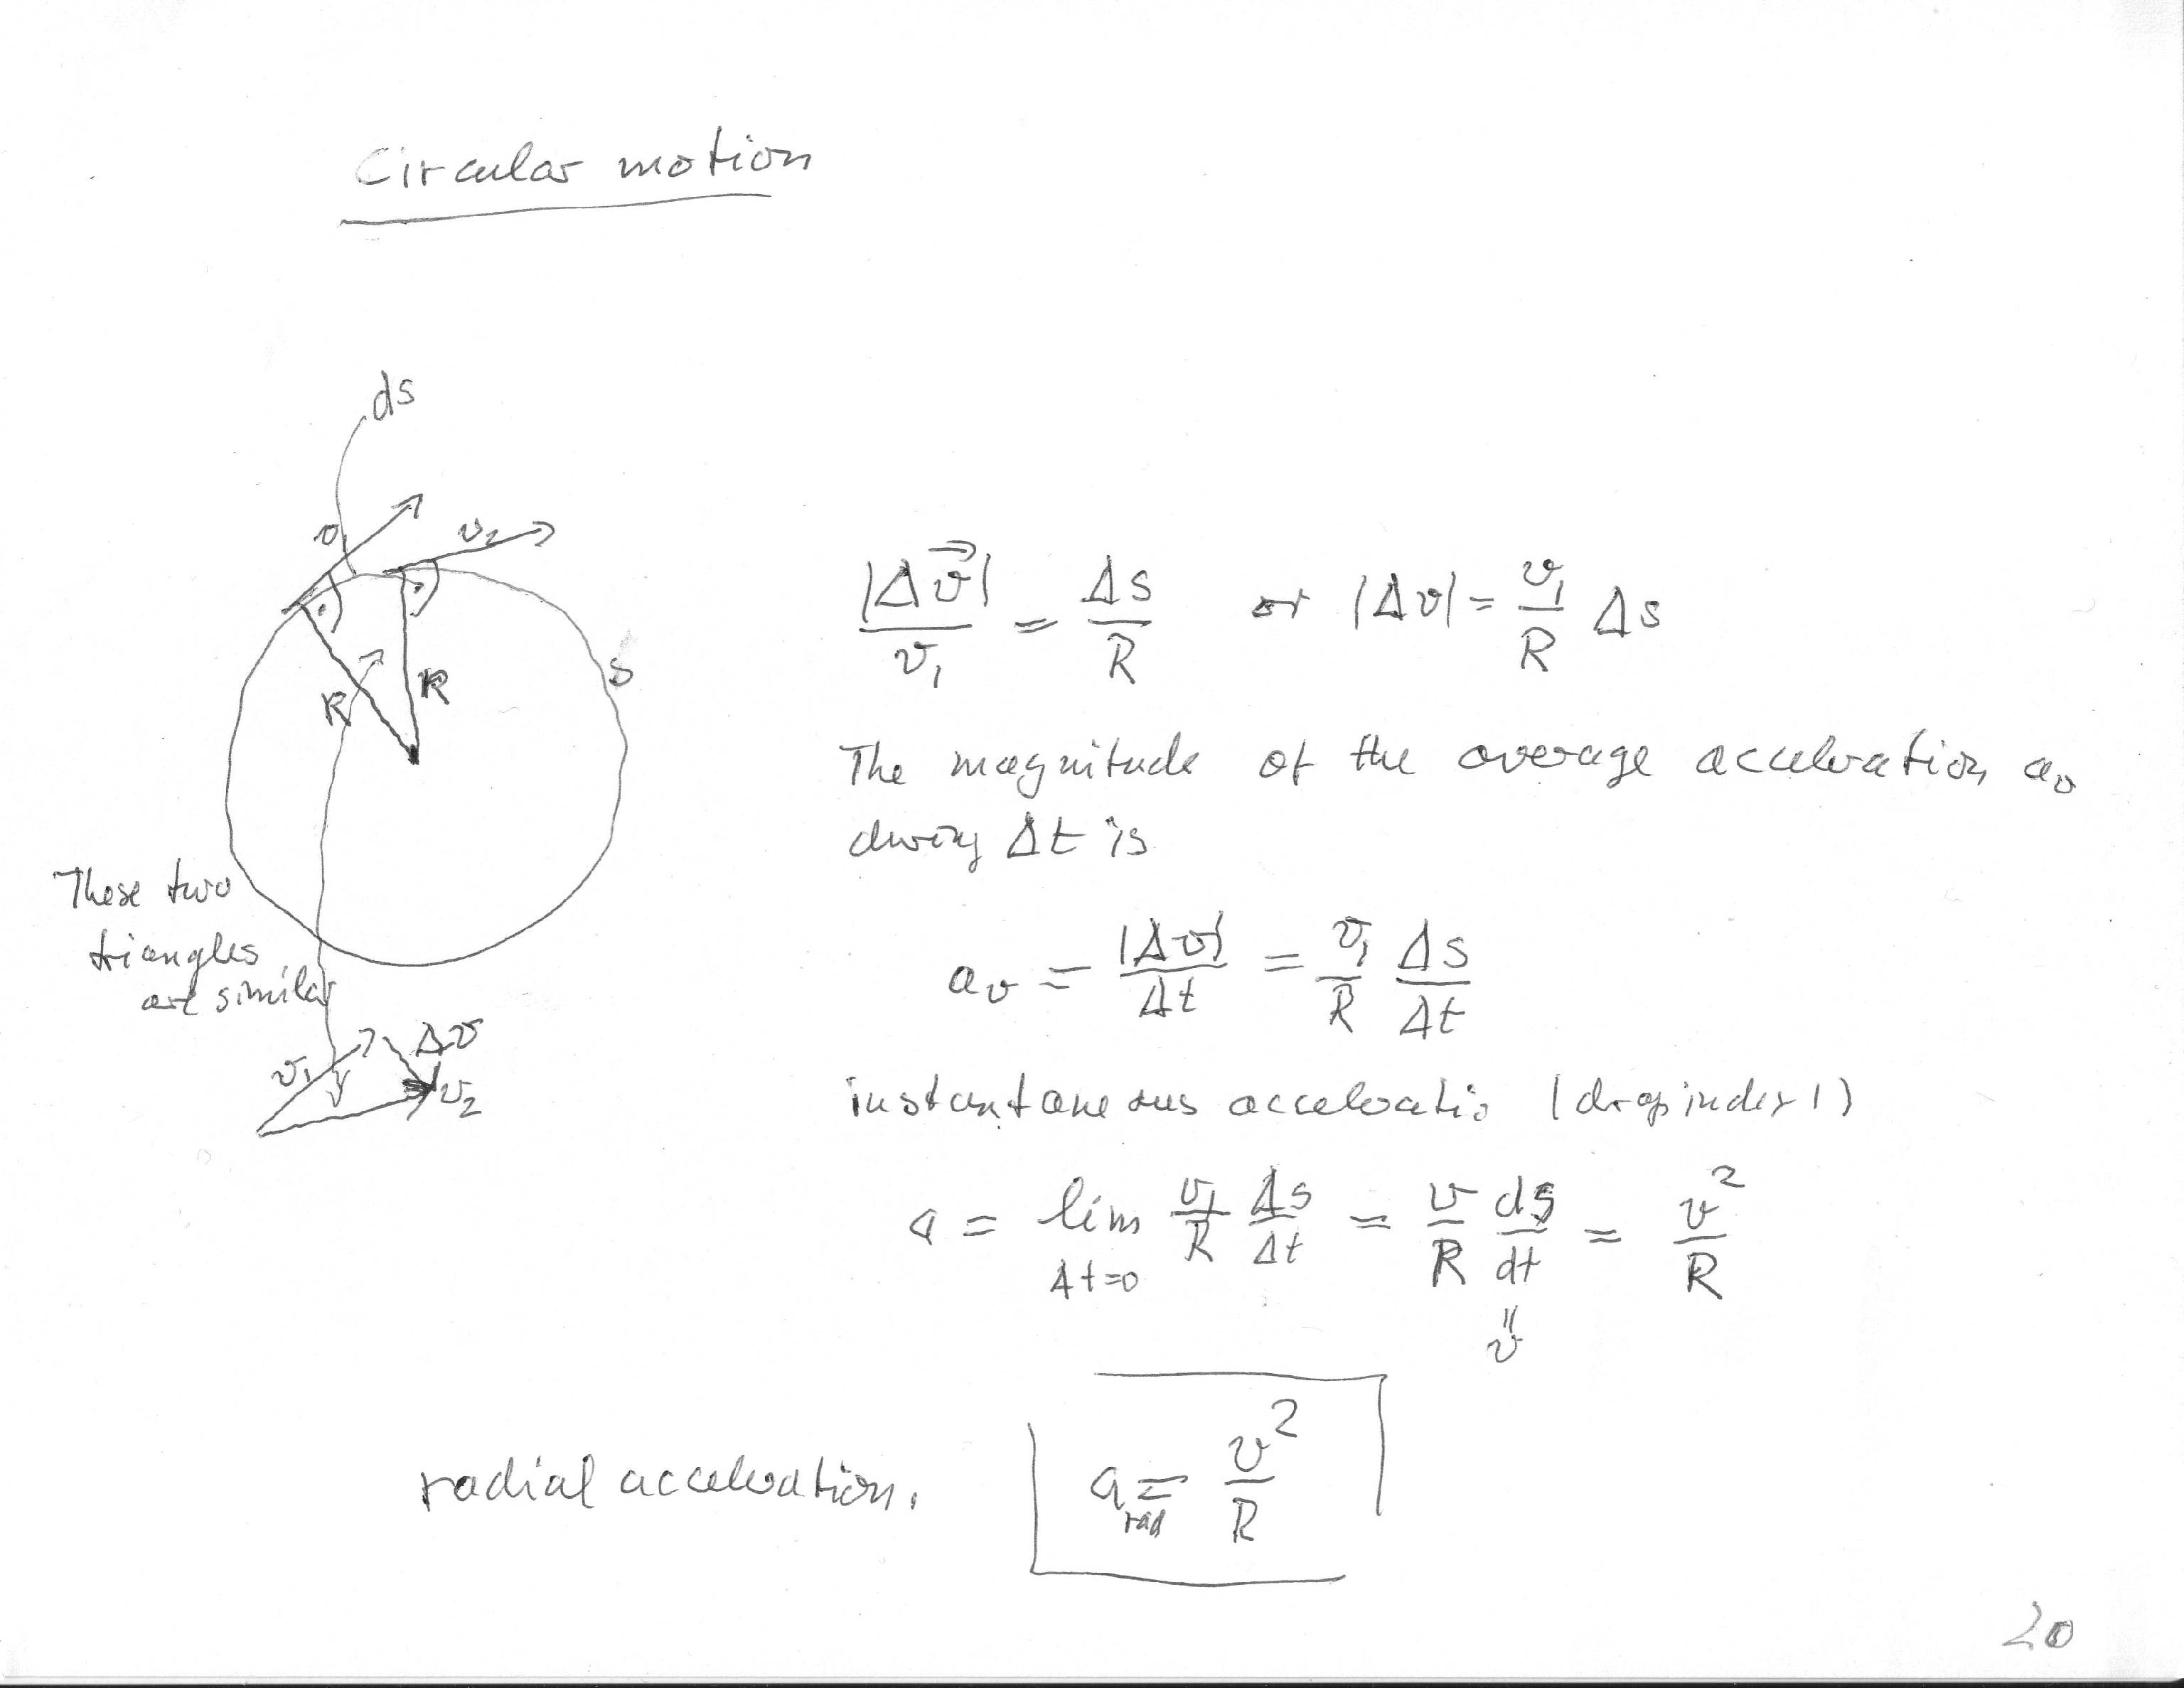 Circular motion
ds
v₁
v₂
R
R
s
These two
triangles
are similar
v₁
Δv
v₂
|Δv⃗|/v₁ = Δs/R or |Δv| = v₁/R Δs
The magnitude of the average acceleration aᵥ
during Δt is
aᵥ = |Δv|/Δt = v₁/R Δs/Δt
instantaneous acceleratio (drop index 1)
a = lim Δt=0 v₁/R Δs/Δt = v/R ds/dt = v²/R
" v
radial acceleration. a rad = v²/R
20